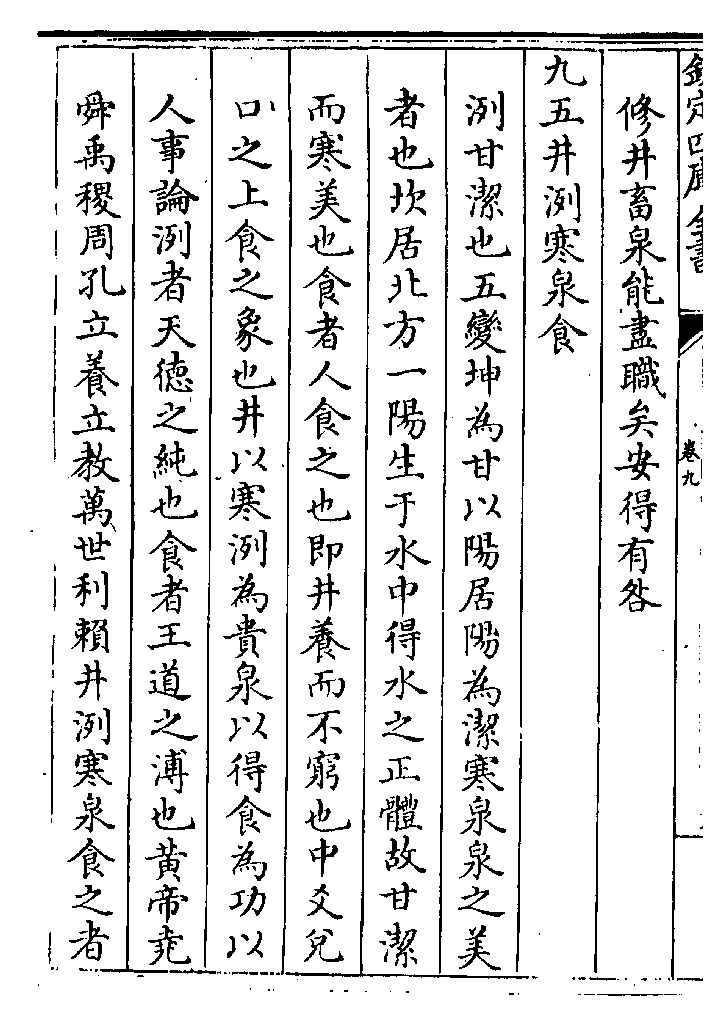 欽定四庫全書
卷九
修井畜泉能盡職矣安得有咎
九五井洌寒泉食
洌甘潔也五變坤為甘以陽居陽為潔寒泉泉之美
者也坎居北方一陽生于水中得水之正體故甘潔
而寒美也食者人食之也即井養而不窮也中爻兌
口之上食之象也井以寒洌為貴泉以得食為功以
人事論洌者天德之純也食者王道之溥也黃帝堯
舜禹稷周孔立養立教萬世利賴井洌寒泉食之者